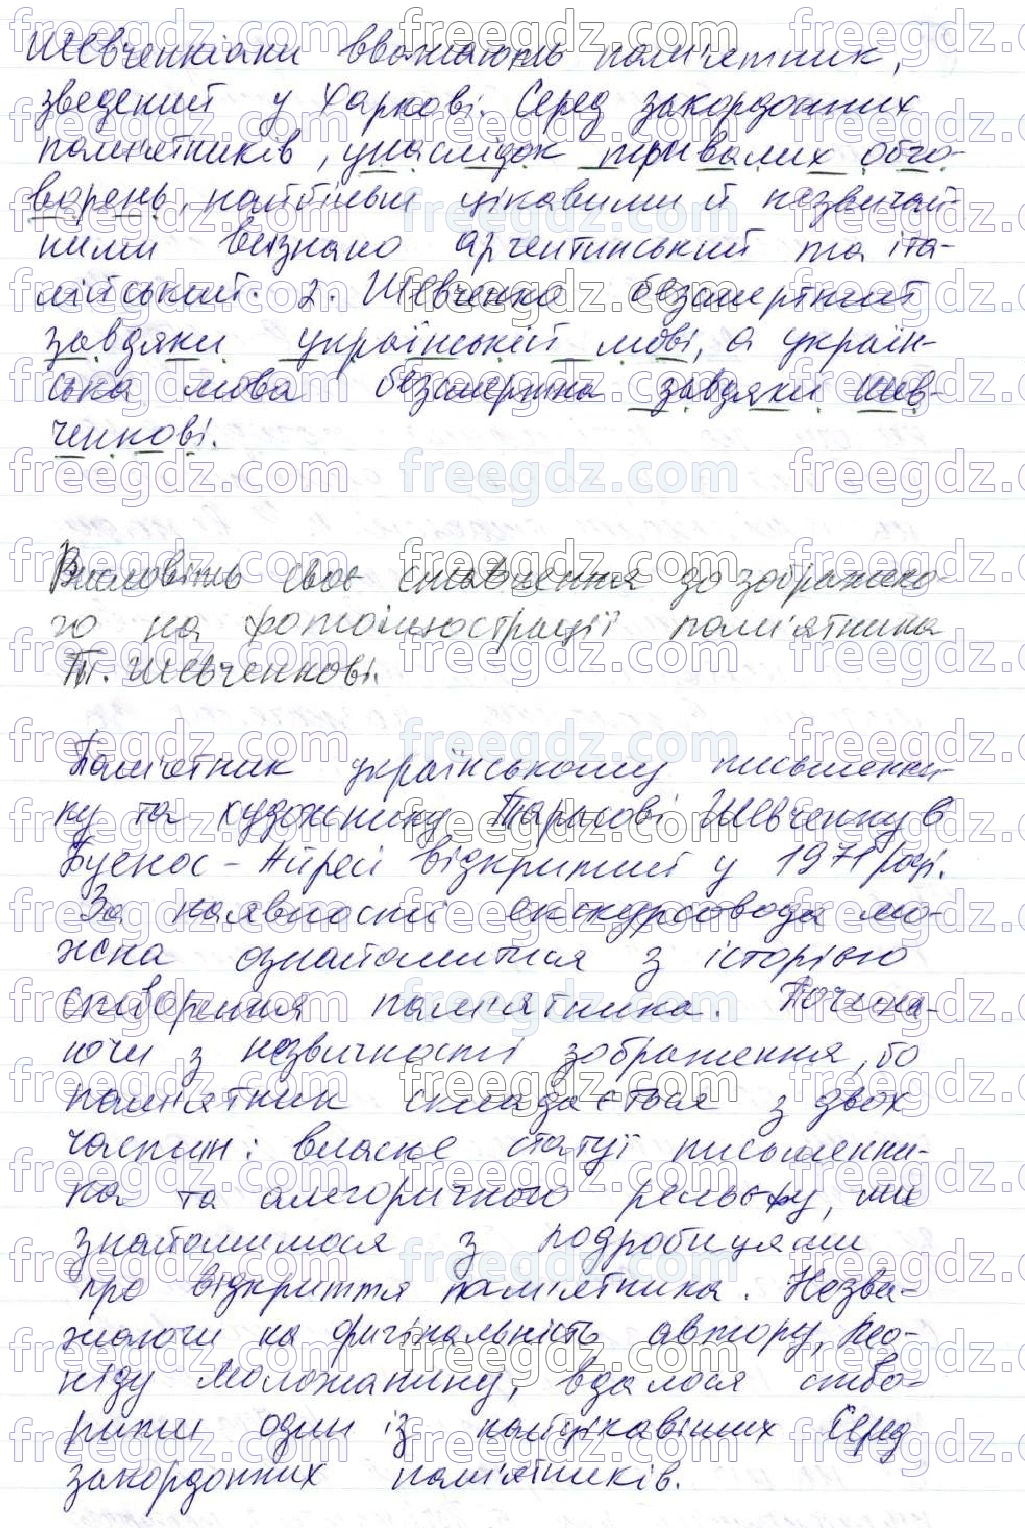 Шевченкіани вважають пам'ятник,
зведений у Харкові. Серед закордонних
пам'ятників, унаслідок тривалих обго-
ворень, найбільш цікавими й незвичай-
ними визнано аргентинський та іта-
лійський. 2. Шевченко безсмертний
завдяки українській мові, а україн-
ська мова безсмертна завдяки Шев-
ченкові.
Висловіть своє ставлення до зображено-
го на фотоілюстрації пам'ятника
Т. Шевченкові.
Пам'ятник українському письменни-
ку та художнику Тарасові Шевченку в
Буенос-Айресі відкритий у 1971 році.
За наявності екскурсовода мо-
жна ознайомитися з історією
створення пам'ятника. Почина-
ючи з незвичності зображення, бо
пам'ятник складається з двох
частин: власне статуї письменни-
ка та алегоричного рельєфу, ми
знайомимося з подробицями
про відкриття пам'ятника. Незва-
жаючи на оригінальність автору, Лео-
ніду Моложанину, вдалося ство-
рити один із найцікавіших серед
закордонних пам'ятників.
freegdz.com